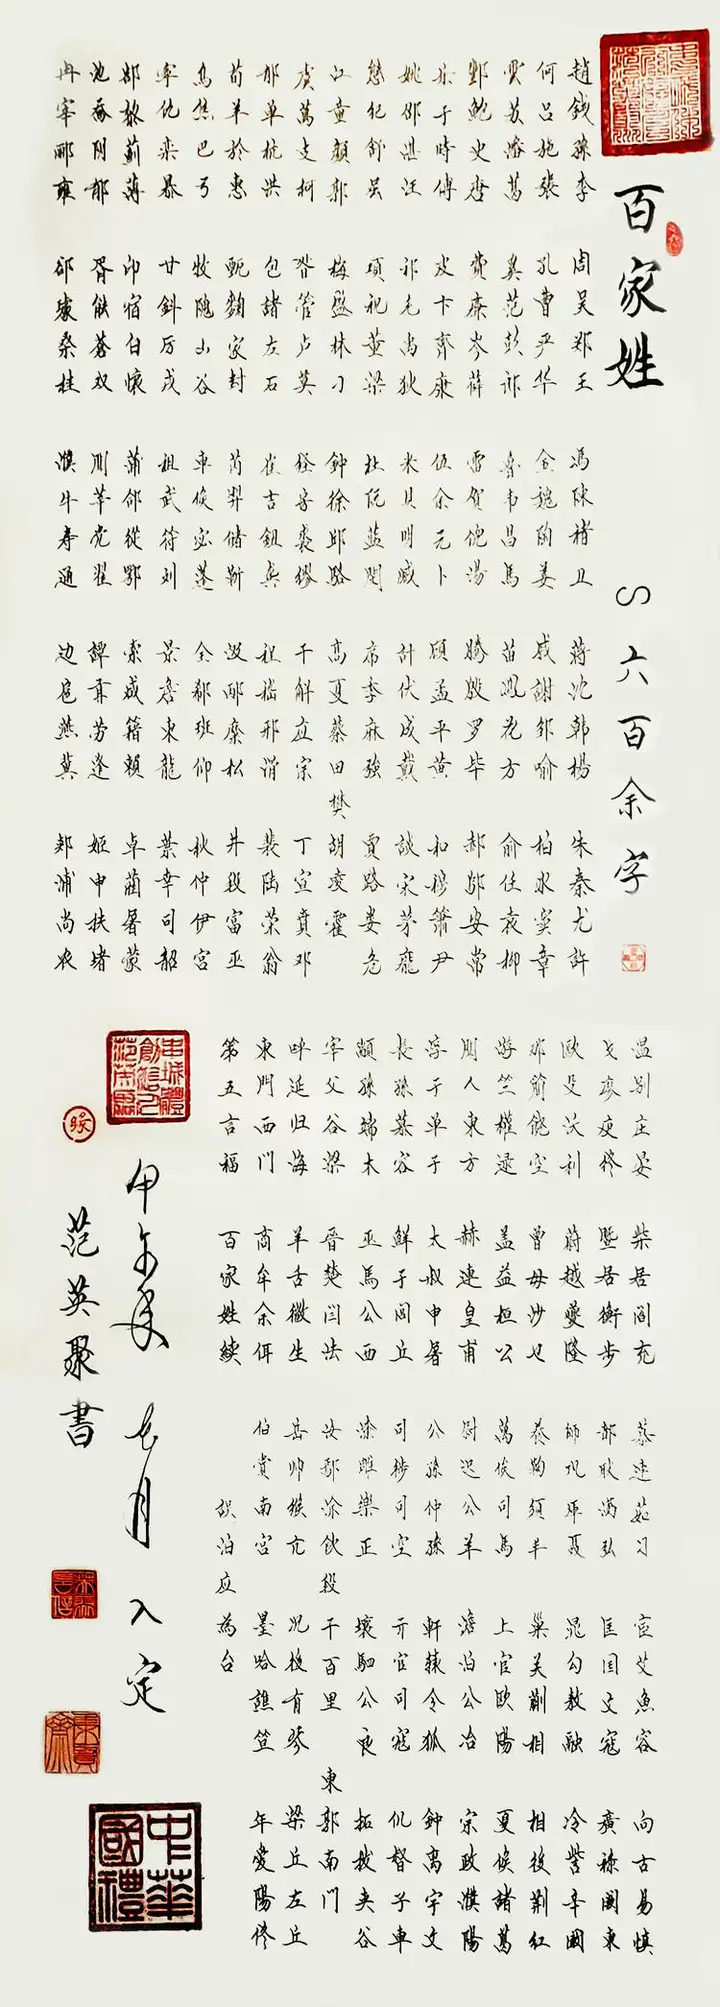 百家姓
S六百余字
趙錢孫李 周吳郑王 馮陳褚卫 蔣沈韓楊 朱秦尤許
何吕施張 孔曹严华 金魏陶姜 戚謝邹喻 柏水窦章
雲苏潘葛 奚范彭郎 魯韦昌馬 苗鳳花方 俞任袁柳
酆鮑史唐 費廉岑薛 雷賀倪湯 滕殷罗毕 郝鄔安常
乐于時傅 皮卞齊康 伍余元卜 顾孟平黄 和穆箫尹
姚邵湛汪 祁毛禹狄 米貝明臧 計伏成戴 談宋茅龐
熊纪舒屈 項祝董梁 杜阮藍閔 席季麻強 賈路娄危
江童顏郭 梅盛林刁 鈡徐邱駱 高夏蔡田樊 胡凌霍
虞萬支柯 昝管卢莫 經房裘缪 干解应宗 丁宣賁邓
郁单杭洪 包諸左石 崔吉鈕龔 程嵇邢滑 裴陆荣翁
荀羊於惠 甄麴家封 芮羿储靳 汲邴糜松 井段富巫
烏焦巴弓 牧隗山谷 車侯宓蓬 全郗班仰 秋仲伊宫
宁仇栾暴 甘斜厉戎 祖武符刘 景詹束龍 葉幸司韶
郜黎薊薄 印宿白懷 蒲邰從鄂 索咸籍賴 卓藺屠蒙
池乔阴郁 胥能蒼双 闻莘党翟 譚貢劳逄 姬申扶堵
冉宰郦雍 郤璩桑桂 濮牛寿通 边扈燕冀 郏浦尚农
温别庄晏 柴瞿阎充 慕連茹习 宦艾魚容 向古易慎
戈廖庾终 暨居衡步 都耿满弘 匡国文寇 廣禄闕東
欧殳沃利 蔚越夔隆 師巩厍聂 晁勾敖融 冷訾辛闞
那简饒空 曾毋沙乜 養鞠須丰 巢关蒯相 相後荆红
游竺權逯 盖益桓公 萬俟司馬 上官欧陽 夏侯諸葛
聞人東方 赫連皇甫 尉迟公羊 澹泊公冶 宗政濮陽
淳于单于 太叔申屠 公孫仲孫 軒轅令狐 鍾离宇文
長孫慕容 鮮于閭丘 司徒司空 亓官司寇 仉督子車
顓孫端木 巫馬公西 漆雕樂正 壤駟公良 拓拔夹谷
宰父谷梁 晋楚闫法 汝鄢涂钦段 干百里 東郭南門
呼延归海 羊舌微生 岳帅缑亢 况後有琴 梁丘左丘
東門西门 商牟佘佴 伯赏南宫 墨哈譙笪 年愛陽佟
第五言福 百家姓续 泊应為台
甲午年 七月 入定
范英聚書
中華國禮